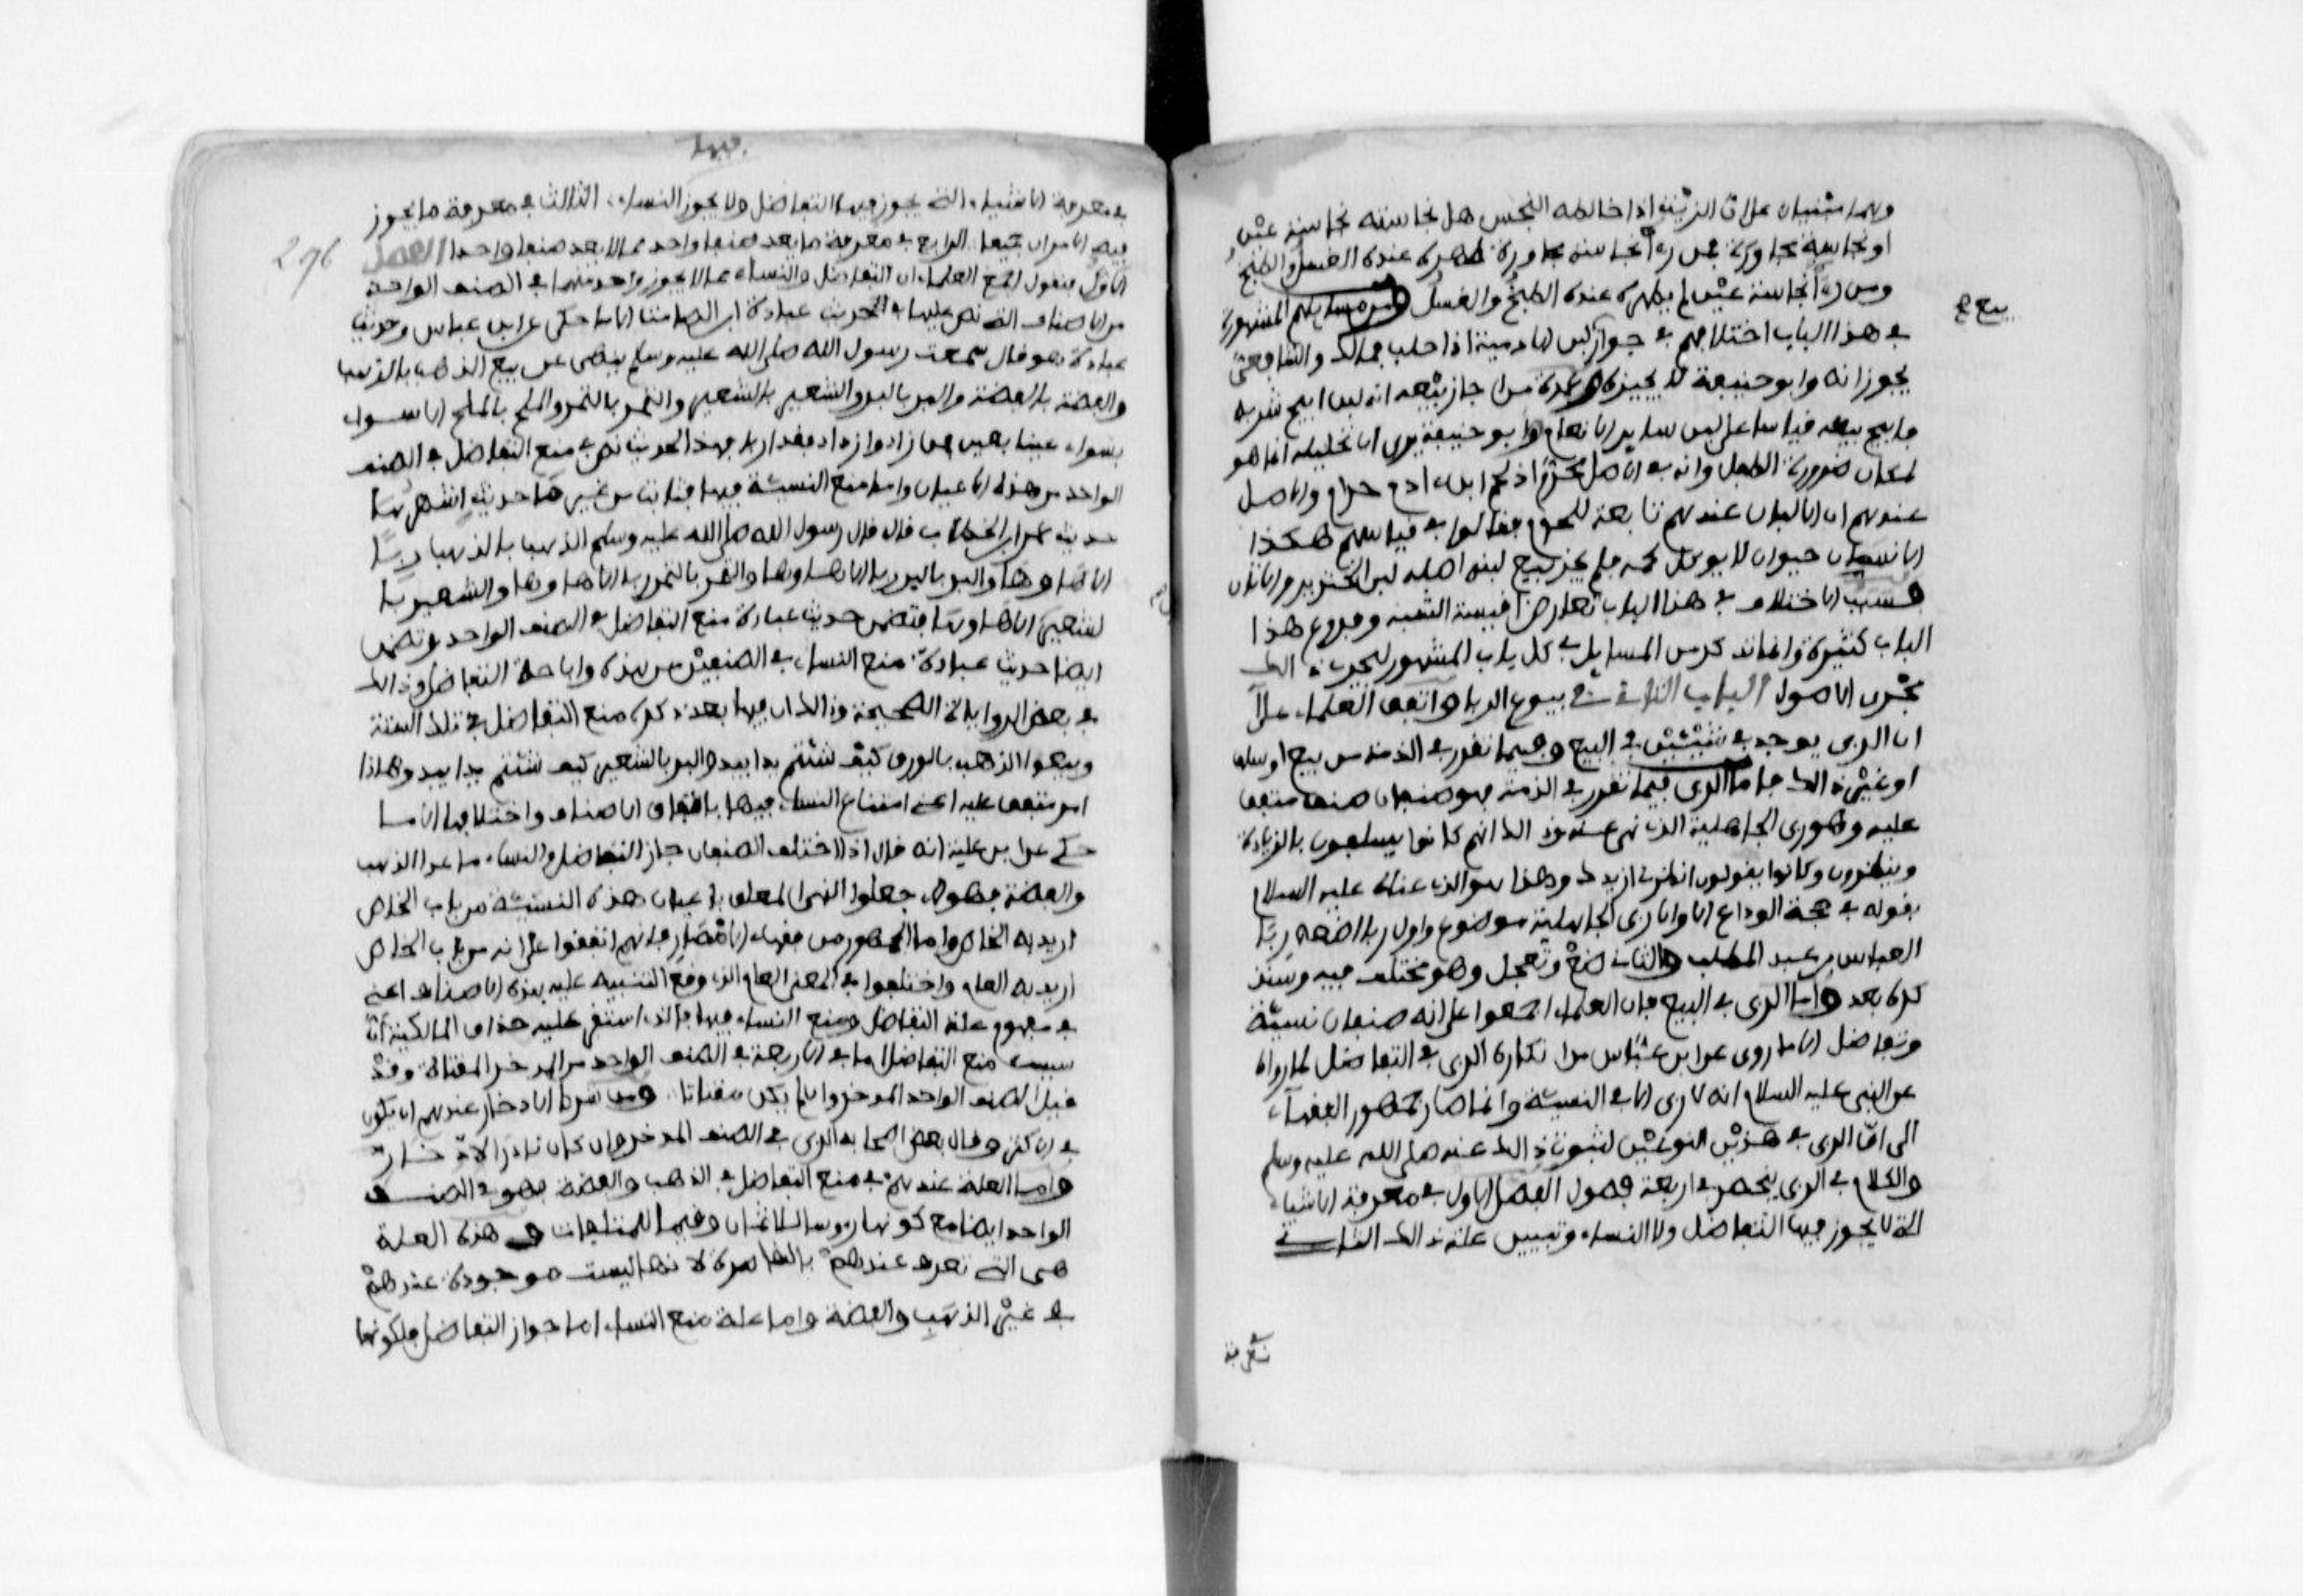 وهما مبنيان على ان الزيت اذا خالطه النجس هل نجاسته نجاسة عين
او نجاسة مجاورة فمن رءا نجاسة مجاورة طهره عنده الغسل والطبخ
ومن رءا نجاسة عين لم يطهره عنده الطبخ والغسل ومن مسايلهم المشهورة
في هذا الباب اختلافهم في جواز لبن الادمية اذا حلب فمالك والشافعي
يجوزانه وابو حنيفة لا يجيزه وعمدة من اجاز بيعه انه لبن ابيح شربه
فابيح بيعه قياسا على لبن ساير الانعام وابو حنيفة يرى ان تحليله انما هو
لمكان ضرورة الطفل وانه في الاصل محرم اذ لحم ابن ءادم حرام والاصل
عندهم ان الالبان عندهم تابعة للحوم فقالوا في قياسهم هكذا
الانسان حيوان لا يوكل لحمه فلم يجز بيع لبنه اصله لبن الخنزير والاتان
فسبب الاختلاف في هذا الباب تعارض اقيسة الشبه وفروع هذا
الباب كثيرة وانما نذكر من المسايل في كل باب المشهور ليجري ذالك
مجرى الاصول الباب الثاني في بيوع الربا واتفق العلماء على
ان الربى يوجد في شيئين في البيع وفيما تقرر في الذمة من بيع او سلف
او غير ذالك فاما الربى فيما تقرر في الذمة فهو صنفان صنف متفق
عليه وهو ربى الجاهلية الذي نهي عنه وذالك انهم كانوا يسلفون بالزيادة
وينظرون وكانوا يقولون انظرني ازيدك وهذا هو الذي عناه عليه السلام
بقوله في حجة الوداع الا وان ربى الجاهلية موضوع واول ربا اضعه ربا
العباس بن عبد المطلب والثاني ضع وتعجل وهو مختلف فيه وسنذ
كره بعد واما الربى في البيع فان العلماء اجمعوا على انه صنفان نسيئة
وتفاضل الا ما روى عن ابن عباس من انكاره الربى في التفاضل لما رواه
عن النبي عليه السلام انه لا ربى الا في النسيئة وانما صار جمهور الفقهاء
الى ان الربى في هذين النوعين لثبوت ذالك عنه صلى الله عليه وسلم
والكلام في الربى ينحصر في اربعة فصول الفصل الاول في معرفة الاشياء
التي لا يجوز فيها التفاضل ولا النساء وتبيين علة ذالك الثاني
بيع
فيها
296
في معرفة الاشياء التي يجوز فيها التفاضل ولا يجوز النساء الثالث في معرفة ما يجوز
فيه الامران جميعا الرابع في معرفة ما يعد صنفا واحد مما لا يعد صنفا واحدا الفصل
الاول فنقول اجمع العلماء ان التفاضل والنساء مما لا يجوز واحد منهما في الصنف الواحد
من الاصناف التي نص عليها في الحديث عبادة ابن الصامت الا ما حكى عن ابن عباس وحديث
عبادة هو قال سمعت رسول الله صلى الله عليه وسلم ينهى عن بيع الذهب بالذهب
والفضة بالفضة والبر بالبر والشعير بالشعير والتمر بالتمر والملح بالملح الا سواء
بسواء عينا بعين فمن زاد او ازداد فقد اربا فهذا الحديث نص في منع التفاضل في الصنف
الواحد من هذه الاعيان واما منع النسيئة فيها فثابت من غير ما حديث اشهرها
حديث عمر ابن الخطاب قال قال رسول الله صلى الله عليه وسلم الذهب بالذهب ربا
الا هاء وهاء والبر بالبر ربا الا هاء وها والتمر بالتمر ربا الا ها وها والشعير با
لشعير الا ها وها فتضمن حديث عبادة منع التفاضل في الصنف الواحد وتضمن
ايضا حديث عبادة منع النساء في الصنفين من هذه واباحة التفاضل وذالك
في بعض الروايات الصحيحة وذالك ان فيها بعد ذكره منع التفاضل في تلك الستة
وبيعوا الذهب بالورق كيف شئتم يدا بيد والبر بالشعير كيف شئتم يدا بيد وهاذا
امر متفق عليه اعني امتناع النساء فيها باتفاق الاصناف واختلافها الا ما
حكي عن ابن علية انه قال اذا اختلف الصنفان جاز التفاضل والنساء ما عدا الذهب
والفضة فهولاء جعلوا النهي المعلق باعيان هذه الستة من باب الخاص
اريد به الخاص واما الجمهور من فقهاء الامصار فانهم اتفقوا على انه من باب الخاص
اريد به العام واختلفوا في المعنى العام الذي وقع التنبيه عليه بهذه الاصناف اعني
في مفهوم علة التفاضل ومنع النساء فيها فالذي استقر عليه حذاق المالكية ان
سبب منع التفاضل اما في الاربعة في الصنف الواحد من المدخر المقتات وقد
قيل الصنف الواحد المدخر وان لم يكن مقتاتا ومن شرط الادخار عندهم ان يكون
في الاكثر وقال بعض اصحابه الربى في الصنف المدخر وان كان نادر الادخار
واما العلة عندهم في منع التفاضل في الذهب والفضة فهو في الصنف
الواحد ايضا مع كونها رءوسا للاثمان وقيما للمتلفات وهذه العلة
هي التي تعرف عندهم بالقاصرة لانها ليست موجودة عندهم
في غير الذهب والفضة واما علة منع النساء اما جواز التفاضل فلكونها